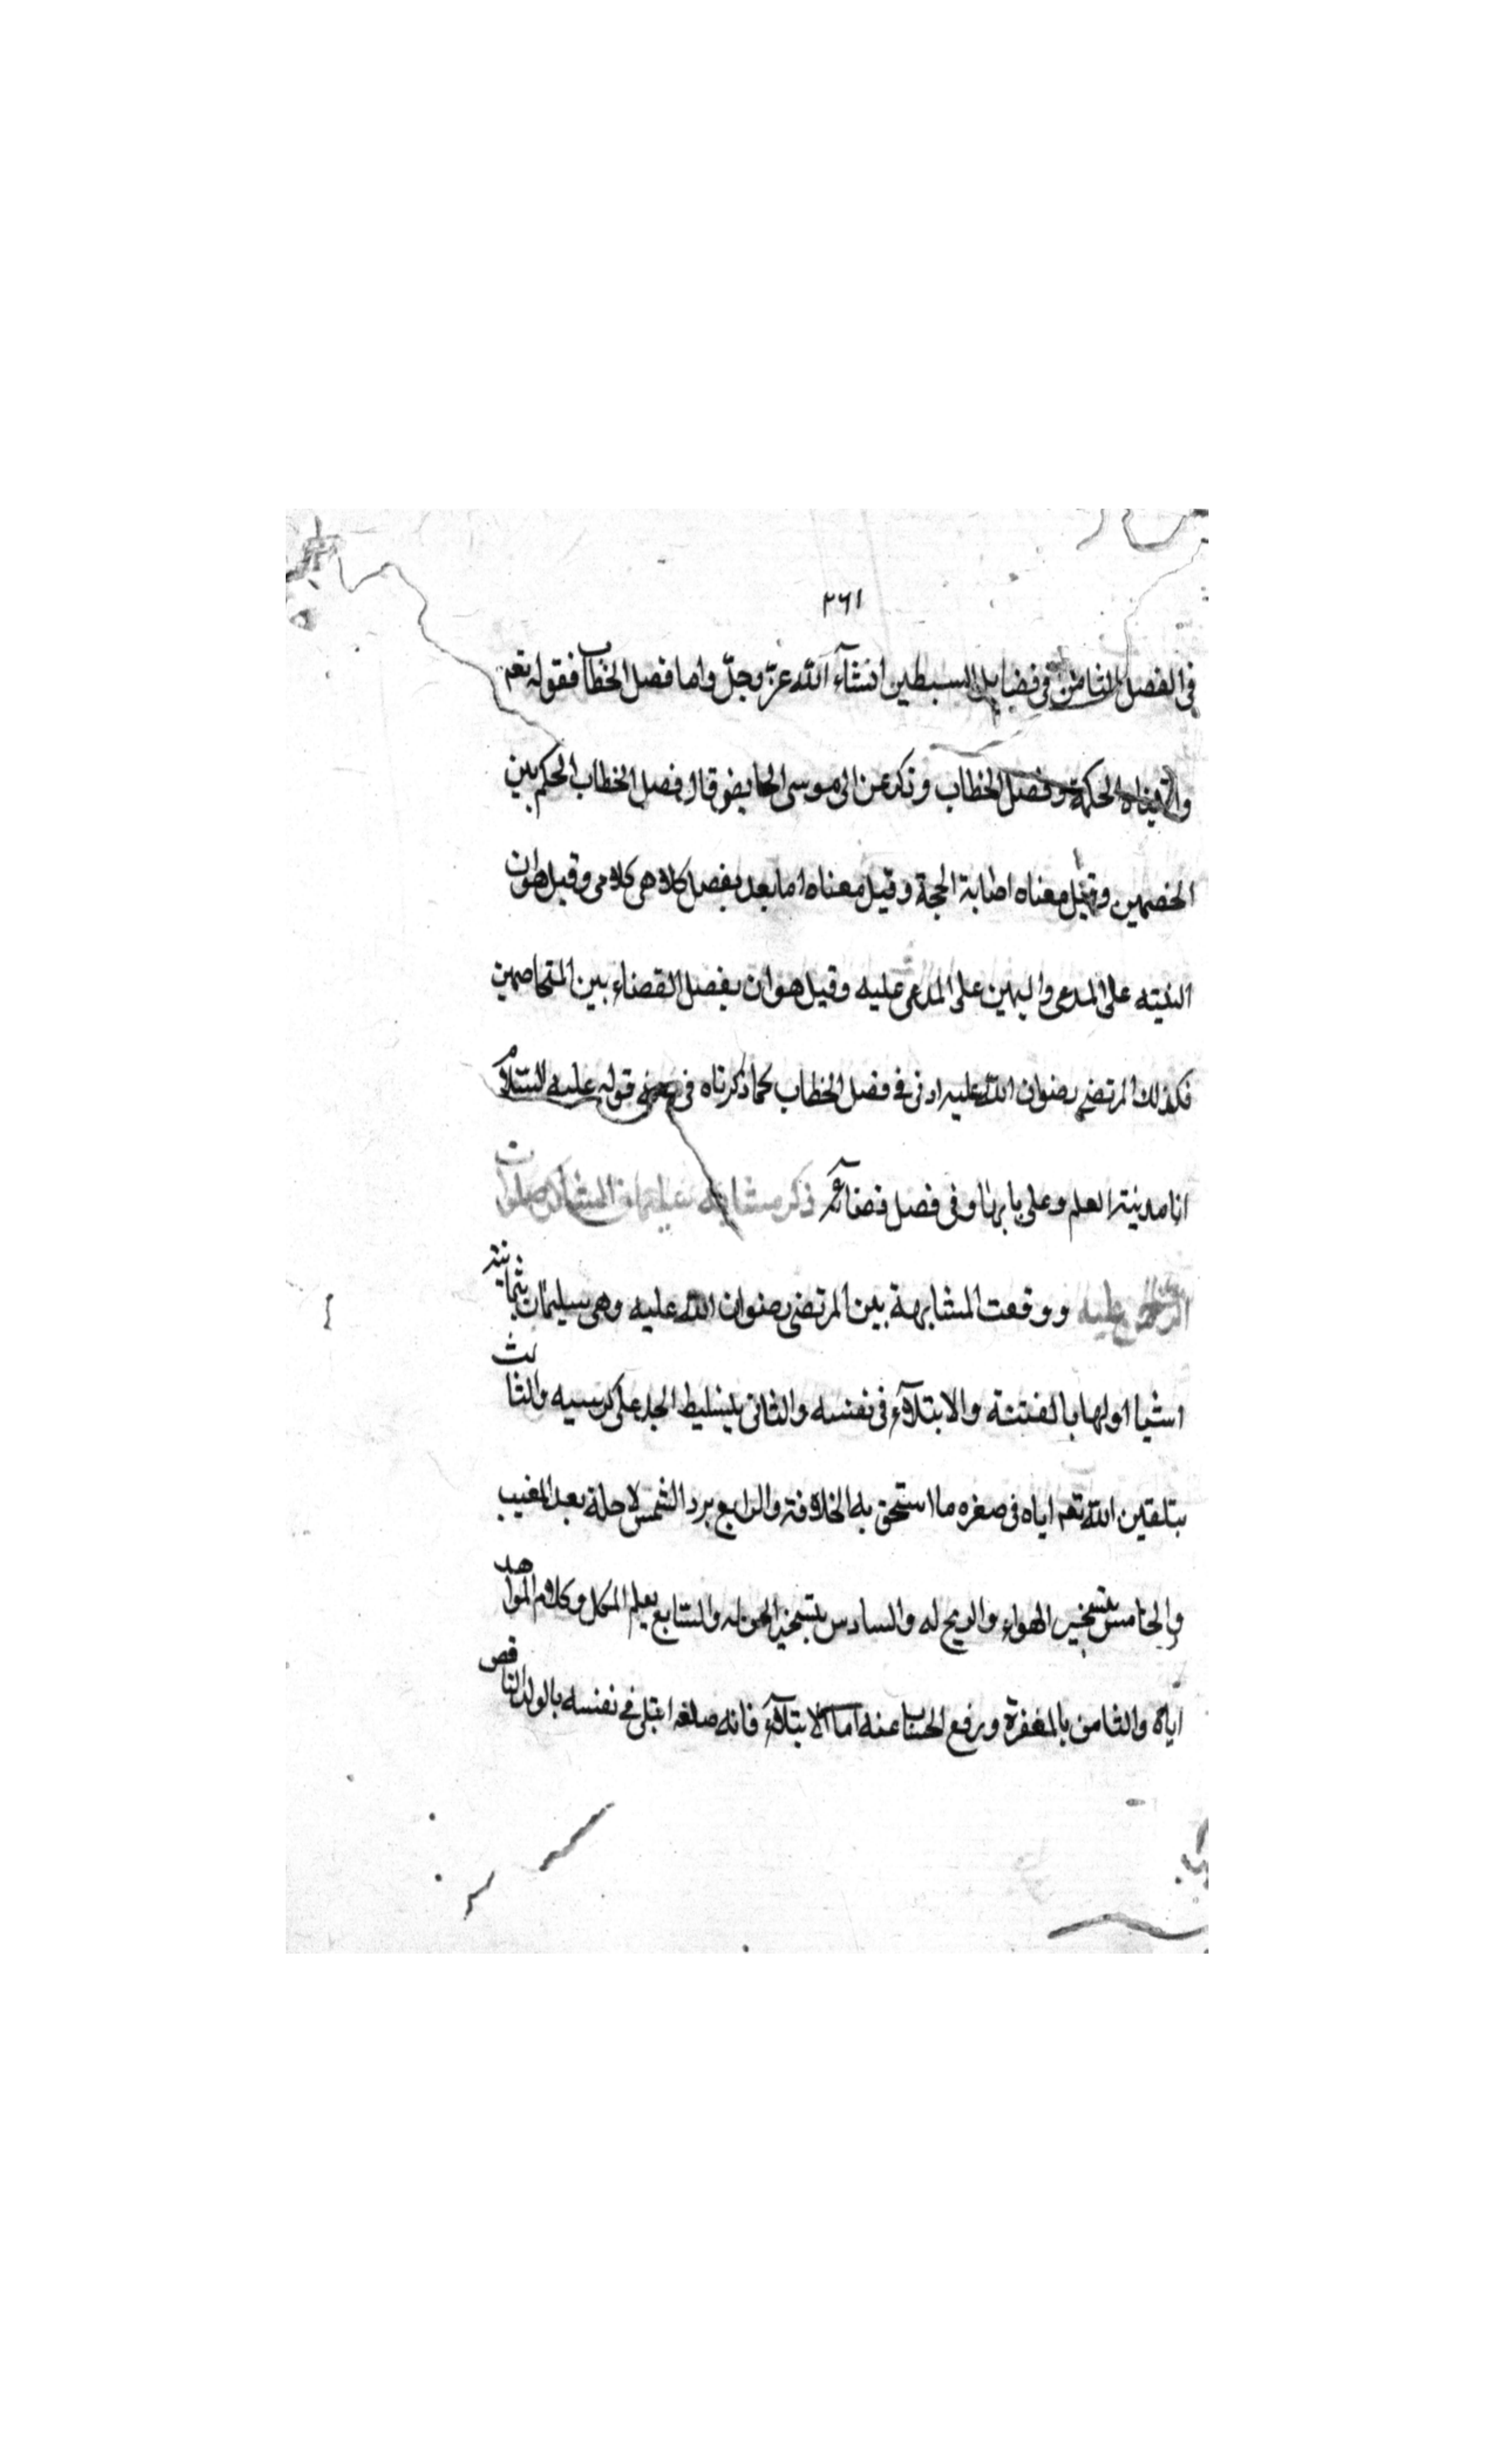 ٢٦١
فى الفصل الثامن فى فضايل السبطين انشآء الله عزّ وجلّ واما فصل الخطاب فقوله تعم
واتيناه الحكمة وفصل الخطاب وذكر عن ابى موسى قال فصل الخطاب الحكم بين
الخصمين وقيل معناه اصابة الحجة وقيل معناه اما بعد يفصل كلامى وقيل هو ان
البنيته على المدعى واليمين على المدعى عليه وقيل هو ان يفصل القضاء بين المتخاصمين
فكذلك المرتضى رضوان الله عليه اوتى فصل الخطاب كما ذكرناه فى قوله عليه السّلام
انا مدينة العلم وعلى بابها وفى فصل قضائه ذكر مشابهة سليمان صلوات
الرحمن عليه ووقعت المشابهة بين المرتضى رضوان الله عليه وهى سليمان بثمانية
اشيا اولها بالفتنة والابتلآء فى نفسه والثانى بتسليط الجسد على كرسيه والثالث
بتلقين الله تعم اياه فى صغره ما استحق به الخلافة والرابع برد الشمس لاجله بعد المغيب
والخامس بتسخير الهواء والريح له والسادس بتسخير الجن له والسابع بعلم النمل وكلام الهداهد
اياه والثامن بالمغفرة ورفع الحساب عنه اما الابتلآء فانه صلعم ابتلى فى نفسه بالولد الناقص